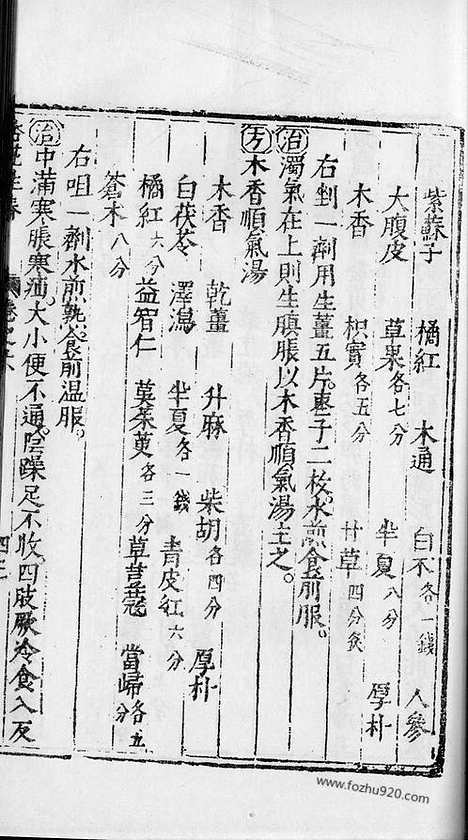 紫蘇子 橘紅 木通 白朮各一錢 人參
大腹皮 草果各七分 半夏八分 厚朴
木香 枳實各五分 甘草四分炙
右剉一劑用生薑五片棗子二枚水煎食前服。
治濁氣在上則生䐜脹以木香順氣湯主之。
方木香順氣湯
木香 乾薑 升麻 柴胡各四分 厚朴
白茯苓 澤瀉 半夏各一錢 青皮紅六分
橘紅六分 益智仁 茱萸各三分 草荳蔲 當歸各五分
蒼朮八分
右咀一劑水煎熟食前温服。
治中滿寒脹寒疝大小便不通陰躁足不收四肢厥冷食入反
www.fozhu920.com